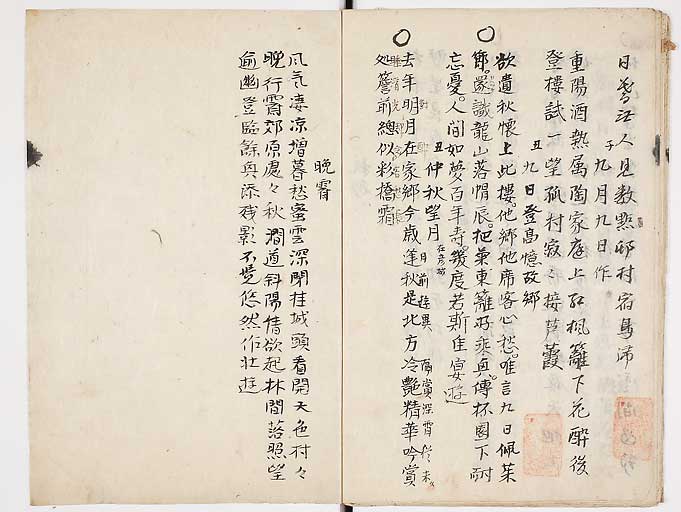 日暮江人見数點邨村宿鳥沛
子 九月九日作
重陽酒熟属陶家庭上紅楓籬下花醉後
登樓試一望孤村寂々接芦霞
丑 九日登高憶故郷
欲遣秋懐上此樓他郷他席客心愁唯言九日佩茱
節還識龍山落帽辰把菊東籬好乗興傳杯園下耐
忘憂人間如夢百年寿幾度若斯佳宴遊
丑 仲秋望月
去年明月在家郷今歳逢秋是北方冷艶精華吟賞
処簷前總似彩橋霜
晩霽
風気凄凉増暮愁蜜雲深閉桂城頭看開天色村々
晩行霽郊原處々秋澗道斜陽情欲起林間落照望
逾幽登臨餘興添残影不覚悠然作壮遊